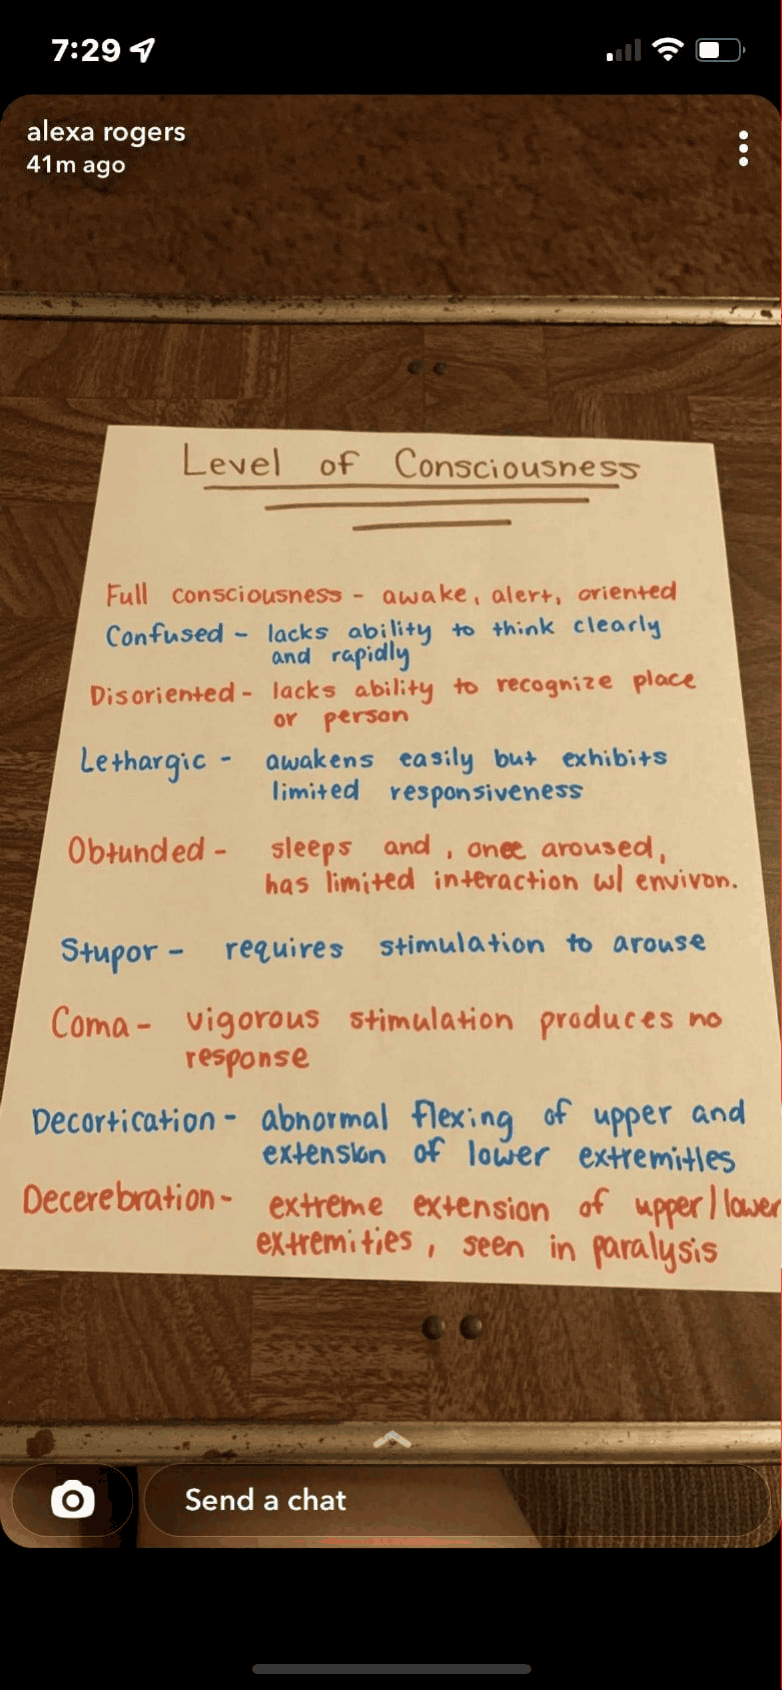 7:29
alexa rogers
41m ago
Level of Consciousness
Full consciousness - awake, alert, oriented
Confused - lacks ability to think clearly
and rapidly
Disoriented - lacks ability to recognize place
or person
Lethargic - awakens easily but exhibits
limited responsiveness
Obtunded - sleeps and, once aroused,
has limited interaction w/ environ.
Stupor - requires stimulation to arouse
Coma - vigorous stimulation produces no
response
Decortication - abnormal flexing of upper and
extension of lower extremities
Decerebration - extreme extension of upper/lower
extremities, seen in paralysis
Send a chat